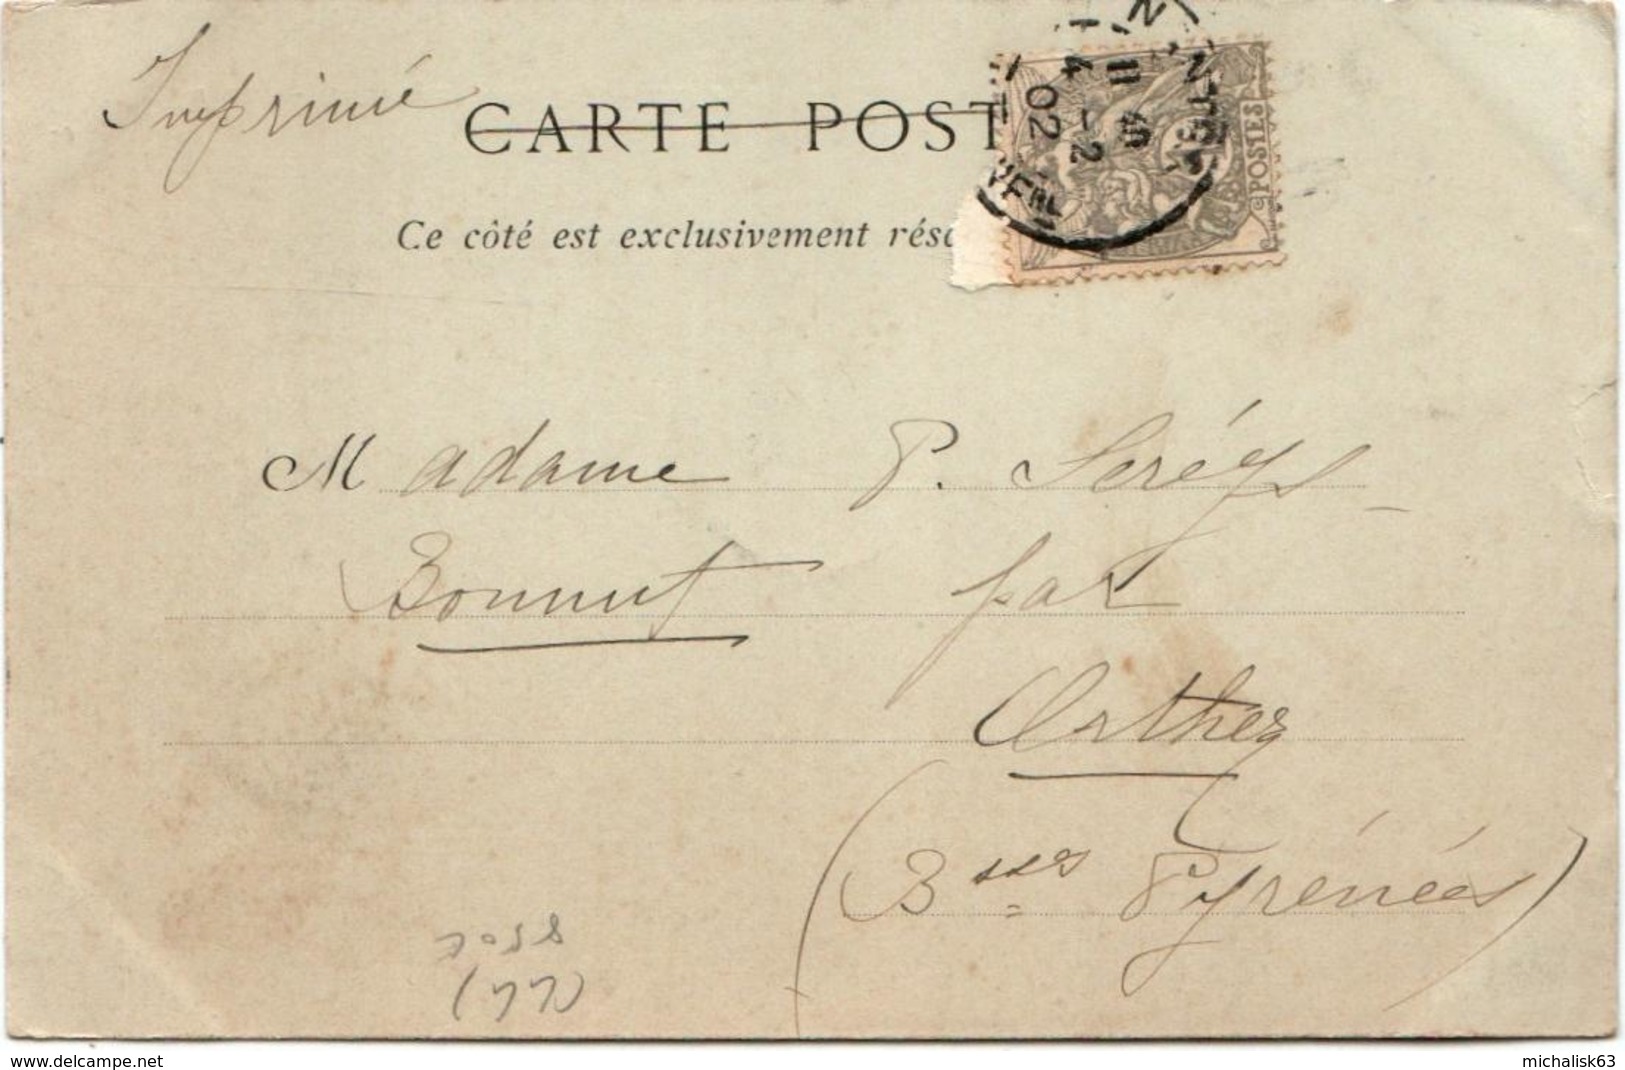 Imprimé
CARTE POST
Ce côté est exclusivement rése
POSTES
11 40
4 -2
02
Madame P. Seréys
Bonnut par
Orthez
(Bses Pyrénées)
www.delcampe.net
michalisk63